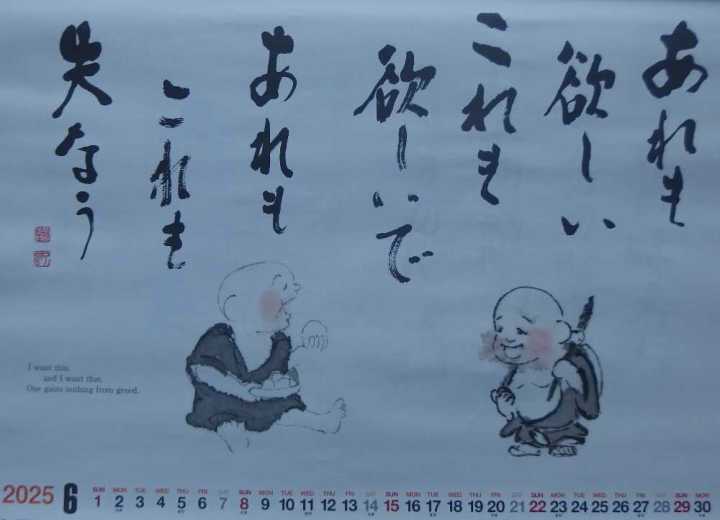 あれも
欲しい
これも
欲しいで
あれも
これも
失なう
I want this
and I want that.
One gains nothing from greed.
2025 6
SUN MON TUE WED THU FRI SAT SUN MON TUE WED THU FRI SAT SUN MON TUE WED THU FRI SAT SUN MON TUE WED THU FRI SAT SUN MON
1 2 3 4 5 6 7 8 9 10 11 12 13 14 15 16 17 18 19 20 21 22 23 24 25 26 27 28 29 30